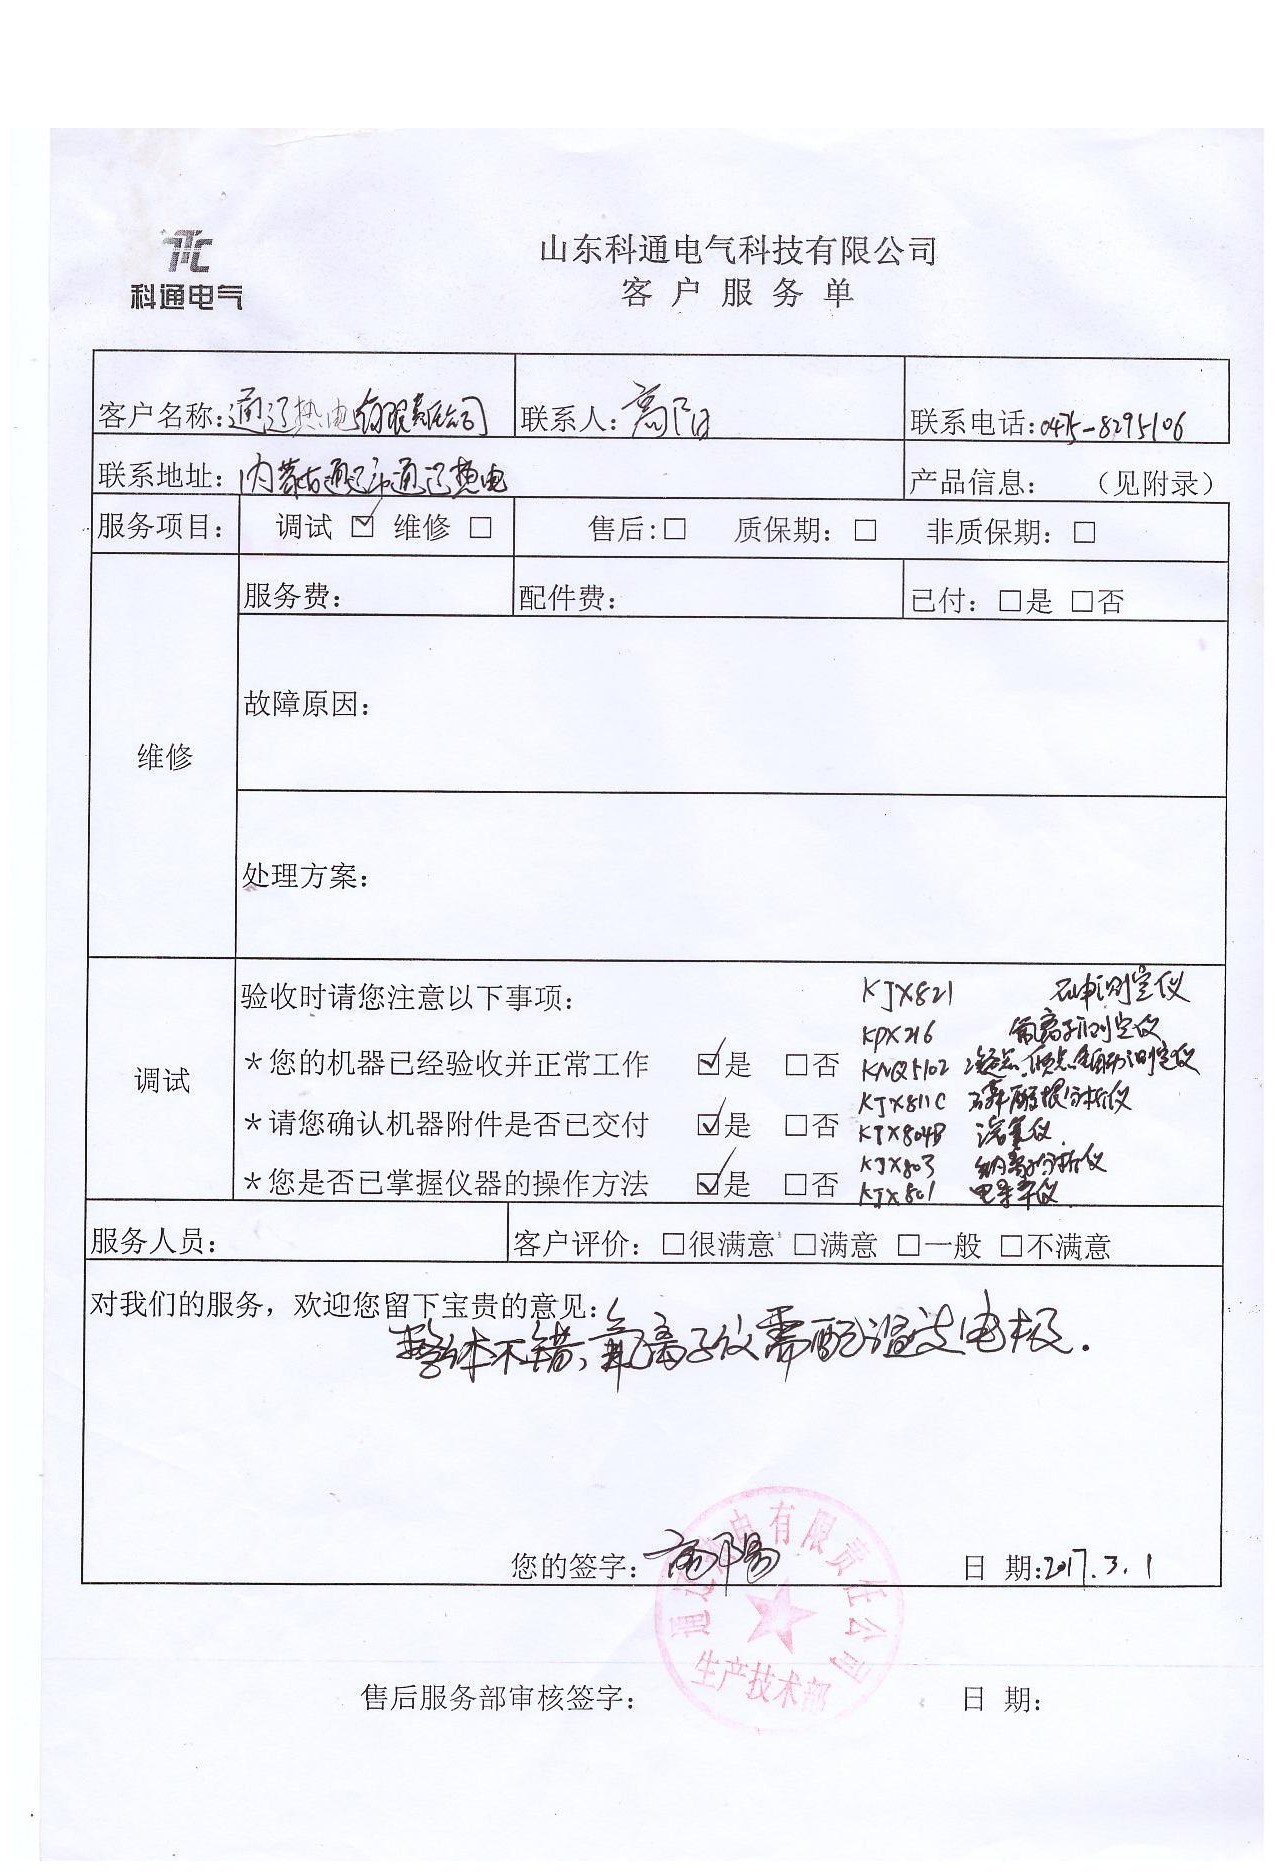 科通电气
山东科通电气科技有限公司
客户服务单
客户名称:通辽热电有限责任公司 联系人:高阳 联系电话:0475-8295106
联系地址:内蒙古通辽市通辽热电 产品信息: (见附录)
服务项目: 调试 ☑ 维修 □ 售后:□ 质保期: □ 非质保期: □
维修
服务费: 配件费: 已付: □是 □否
故障原因:
处理方案:
调试
验收时请您注意以下事项:
*您的机器已经验收并正常工作 ☑是 □否
*请您确认机器附件是否已交付 ☑是 □否
*您是否已掌握仪器的操作方法 ☑是 □否
KJX821 测定仪
KPX216 氟离子测定仪
KNQ5102 凝点、倾点全自动测定仪
KJX811C 磷酸根分析仪
KJX804B 溶氧仪
KJX803 钠离子分析仪
KJX801 电导率仪
服务人员: 客户评价: □很满意 □满意 □一般 □不满意
对我们的服务,欢迎您留下宝贵的意见:
整体不错、氟离子仪需配温度电极.
您的签字:高陽 日 期:2017.3.1
通辽热电有限责任公司
生产技术部
售后服务部审核签字: 日 期: